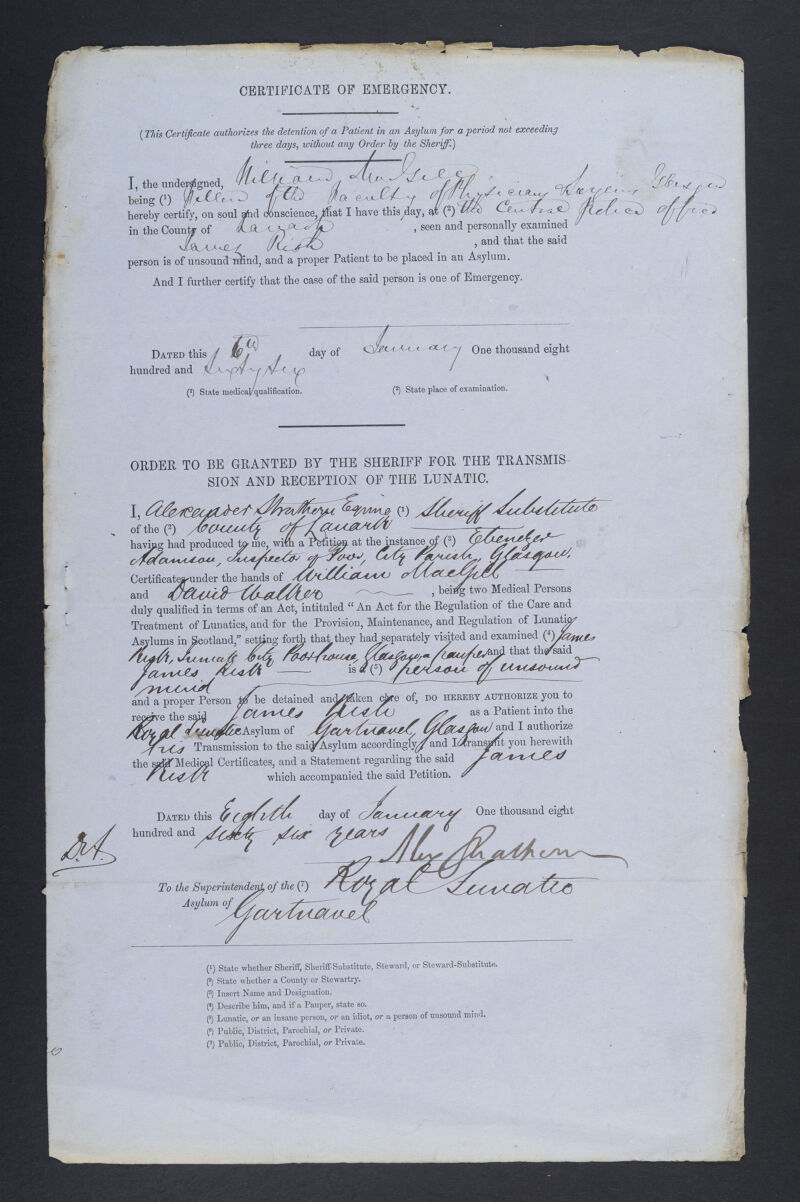 CERTIFICATE OF EMERGENCY.
(This Certificate authorizes the detention of a Patient in an Asylum for a period not exceeding
three days, without any Order by the Sheriff.)
I, the undersigned, William
being (¹) Fellow of the Faculty of Physicians Surgeons Glasgow
hereby certify, on soul and conscience, that I have this day, at (²) the Central Police office
in the County of Lanark , seen and personally examined
James Kish , and that the said
person is of unsound mind, and a proper Patient to be placed in an Asylum.
And I further certify that the case of the said person is one of Emergency.
DATED this 6th day of January One thousand eight
hundred and Sixty Six
(¹) State medical qualification. (²) State place of examination.
ORDER TO BE GRANTED BY THE SHERIFF FOR THE TRANSMIS-
SION AND RECEPTION OF THE LUNATIC.
I, Alexander Strathern Esquire (¹) Sheriff Substitute
of the (²) County of Lanark
having had produced to me, with a Petition at the instance of (³) Ebenezer
Adamson, Inspector of Poor, City Parish, Glasgow.
Certificates under the hands of William MacGill
and David Walker , being two Medical Persons
duly qualified in terms of an Act, intituled "An Act for the Regulation of the Care and
Treatment of Lunatics, and for the Provision, Maintenance, and Regulation of Lunatic
Asylums in Scotland," setting forth that they had separately visited and examined (⁴) James
Kish, Inmate City Poorhouse, Glasgow, a pauper and that the said
James Kish is a (⁵) person of unsound
mind
and a proper Person to be detained and taken care of, DO HEREBY AUTHORIZE you to
receive the said James Kish as a Patient into the
Royal Lunatic Asylum of Gartnavel, Glasgow and I authorize
his Transmission to the said Asylum accordingly; and I transmit you herewith
the said Medical Certificates, and a Statement regarding the said James
Kish which accompanied the said Petition.
DATED this Eighth day of January One thousand eight
hundred and sixty six years
Alex Strathern
To the Superintendent of the (⁷) Royal Lunatic
Asylum of Gartnavel
(¹) State whether Sheriff, Sheriff-Substitute, Steward, or Steward-Substitute.
(²) State whether a County or Stewartry.
(³) Insert Name and Designation.
(⁴) Describe him, and if a Pauper, state so.
(⁵) Lunatic, or an insane person, or an idiot, or a person of unsound mind.
(⁶) Public, District, Parochial, or Private.
(⁷) Public, District, Parochial, or Private.